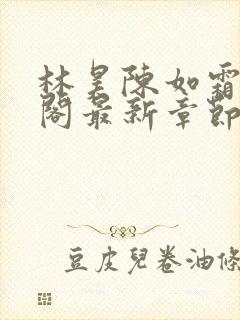 林昊陳如霜
閣最新章節
豆皮兒卷油條